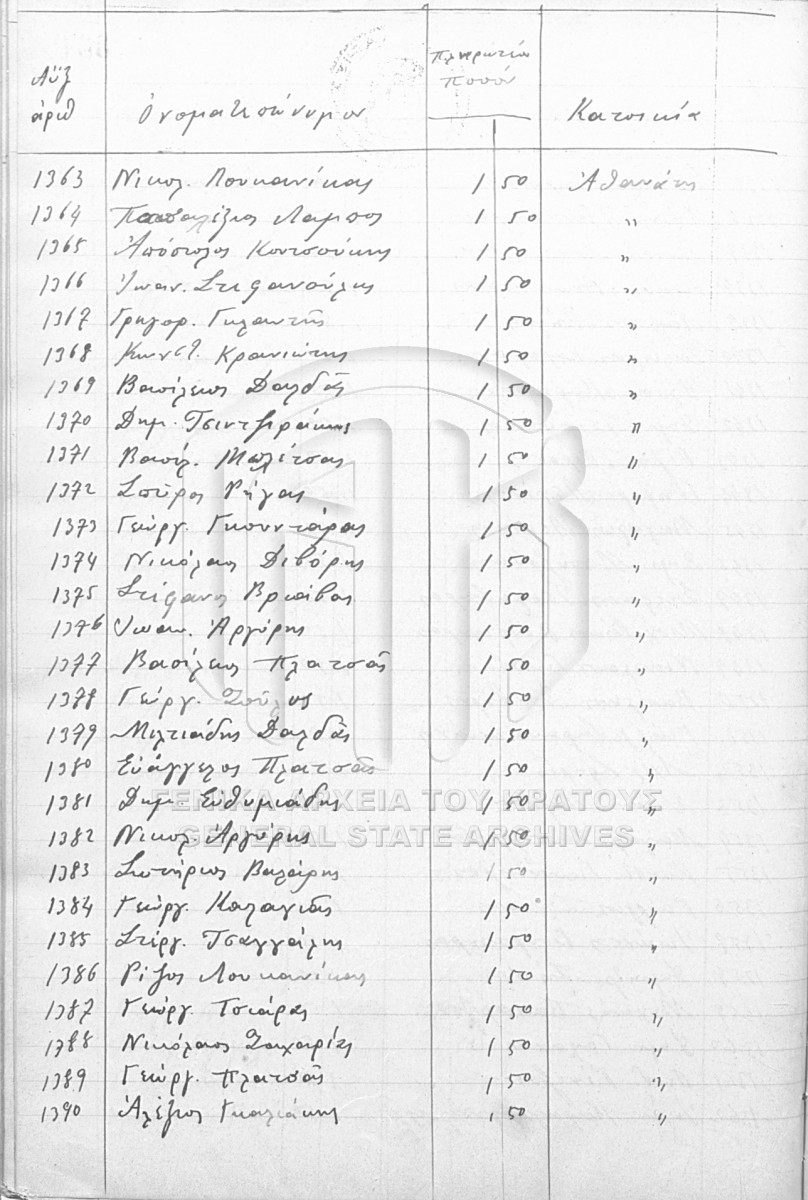 Αὔξ ἀριθ Ὀνοματεπώνυμον Πληρωτέον Ποσόν Κατοικία
1363 Νικολ. Λουκανίκας 1 50 Ἀθανάτης
1364 Λάμπος 1 50 "
1365 Ἀπόστολος Κουτσούκης 1 50 "
1366 Ἰωαν. Στεφανούλης 1 50 "
1367 Γρηγορ. Γιλαντῆς 1 50 "
1368 Κωνστ. Κρανιώτης 1 50 "
1369 Βασίλειος Δαλδᾶς 1 50 "
1370 Δημ. Τσιντζιράκης 1 50 "
1371 Βασίλ. Μπλέτσας 1 50 "
1372 Σπῦρος Ρήγας 1 50 "
1373 Γεώργ. Γκουντάρας 1 50 "
1374 Νικόλαος Διβόρης 1 50 "
1375 Στέφανος 1 50 "
1376 Ἰωαν. Ἀργύρης 1 50 "
1377 Βασίλειος Πλατσᾶς 1 50 "
1378 Γεώργ. Ζοῦλος 1 50 "
1379 Μιλτιάδης Δαλδᾶς 1 50 "
1380 Εὐάγγελος Πλατσᾶς 1 50 "
1381 Δημ. Εὐθυμιάδης 1 50 "
1382 Νικολ. Ἀργύρης 1 50 "
1383 Σωτήριος Βαλάρης 1 50 "
1384 Γεώργ. Καλαγιᾶς 1 50 "
1385 Στέργ. Τσαγγάλης 1 50 "
1386 Ρίζος Λουκανίκας 1 50 "
1387 Γεώργ. Τσιάρας 1 50 "
1388 Νικόλαος Ζαχαρίας 1 50 "
1389 Γεώργ. Πλατσᾶς 1 50 "
1390 Ἀλέξιος Γκαλιάκης 1 50 "
ΓΕΝΙΚΑ ΑΡΧΕΙΑ ΤΟΥ ΚΡΑΤΟΥΣ
GENERAL STATE ARCHIVES